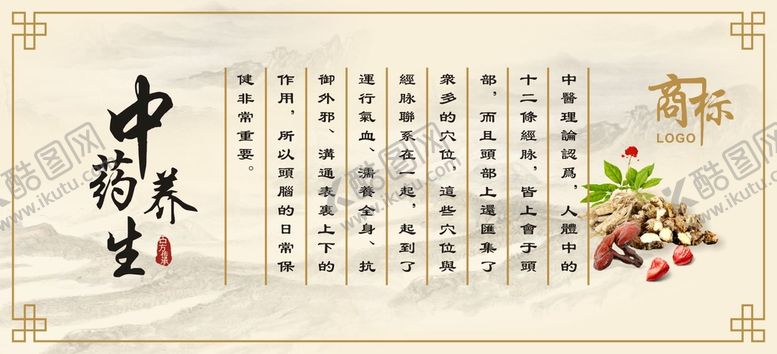 商标
LOGO
中醫理論認爲，人體中的
十二條經脉，皆上會于頭
部，而且頭部上還匯集了
衆多的穴位，這些穴位與
經脉聯系在一起，起到了
運行氣血、濡養全身、抗
御外邪、溝通表裏上下的
作用，所以頭腦的日常保
健非常重要。
中药养生
古方传承
酷图网
www.ikutu.com